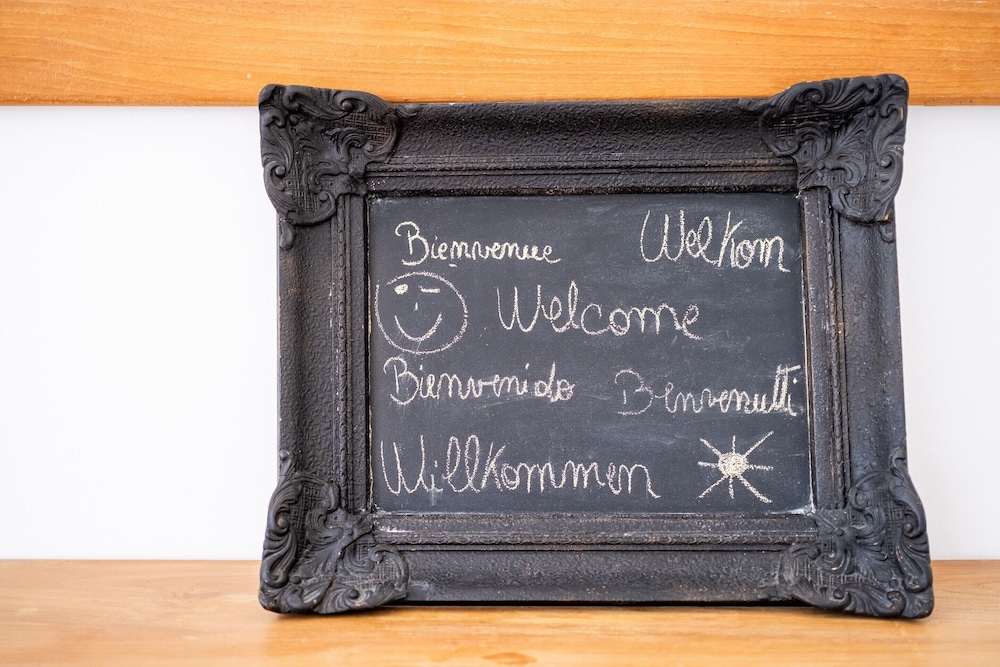 Bienvenue Welkom
Welcome
Bienvenido Benvenutti
Willkommen